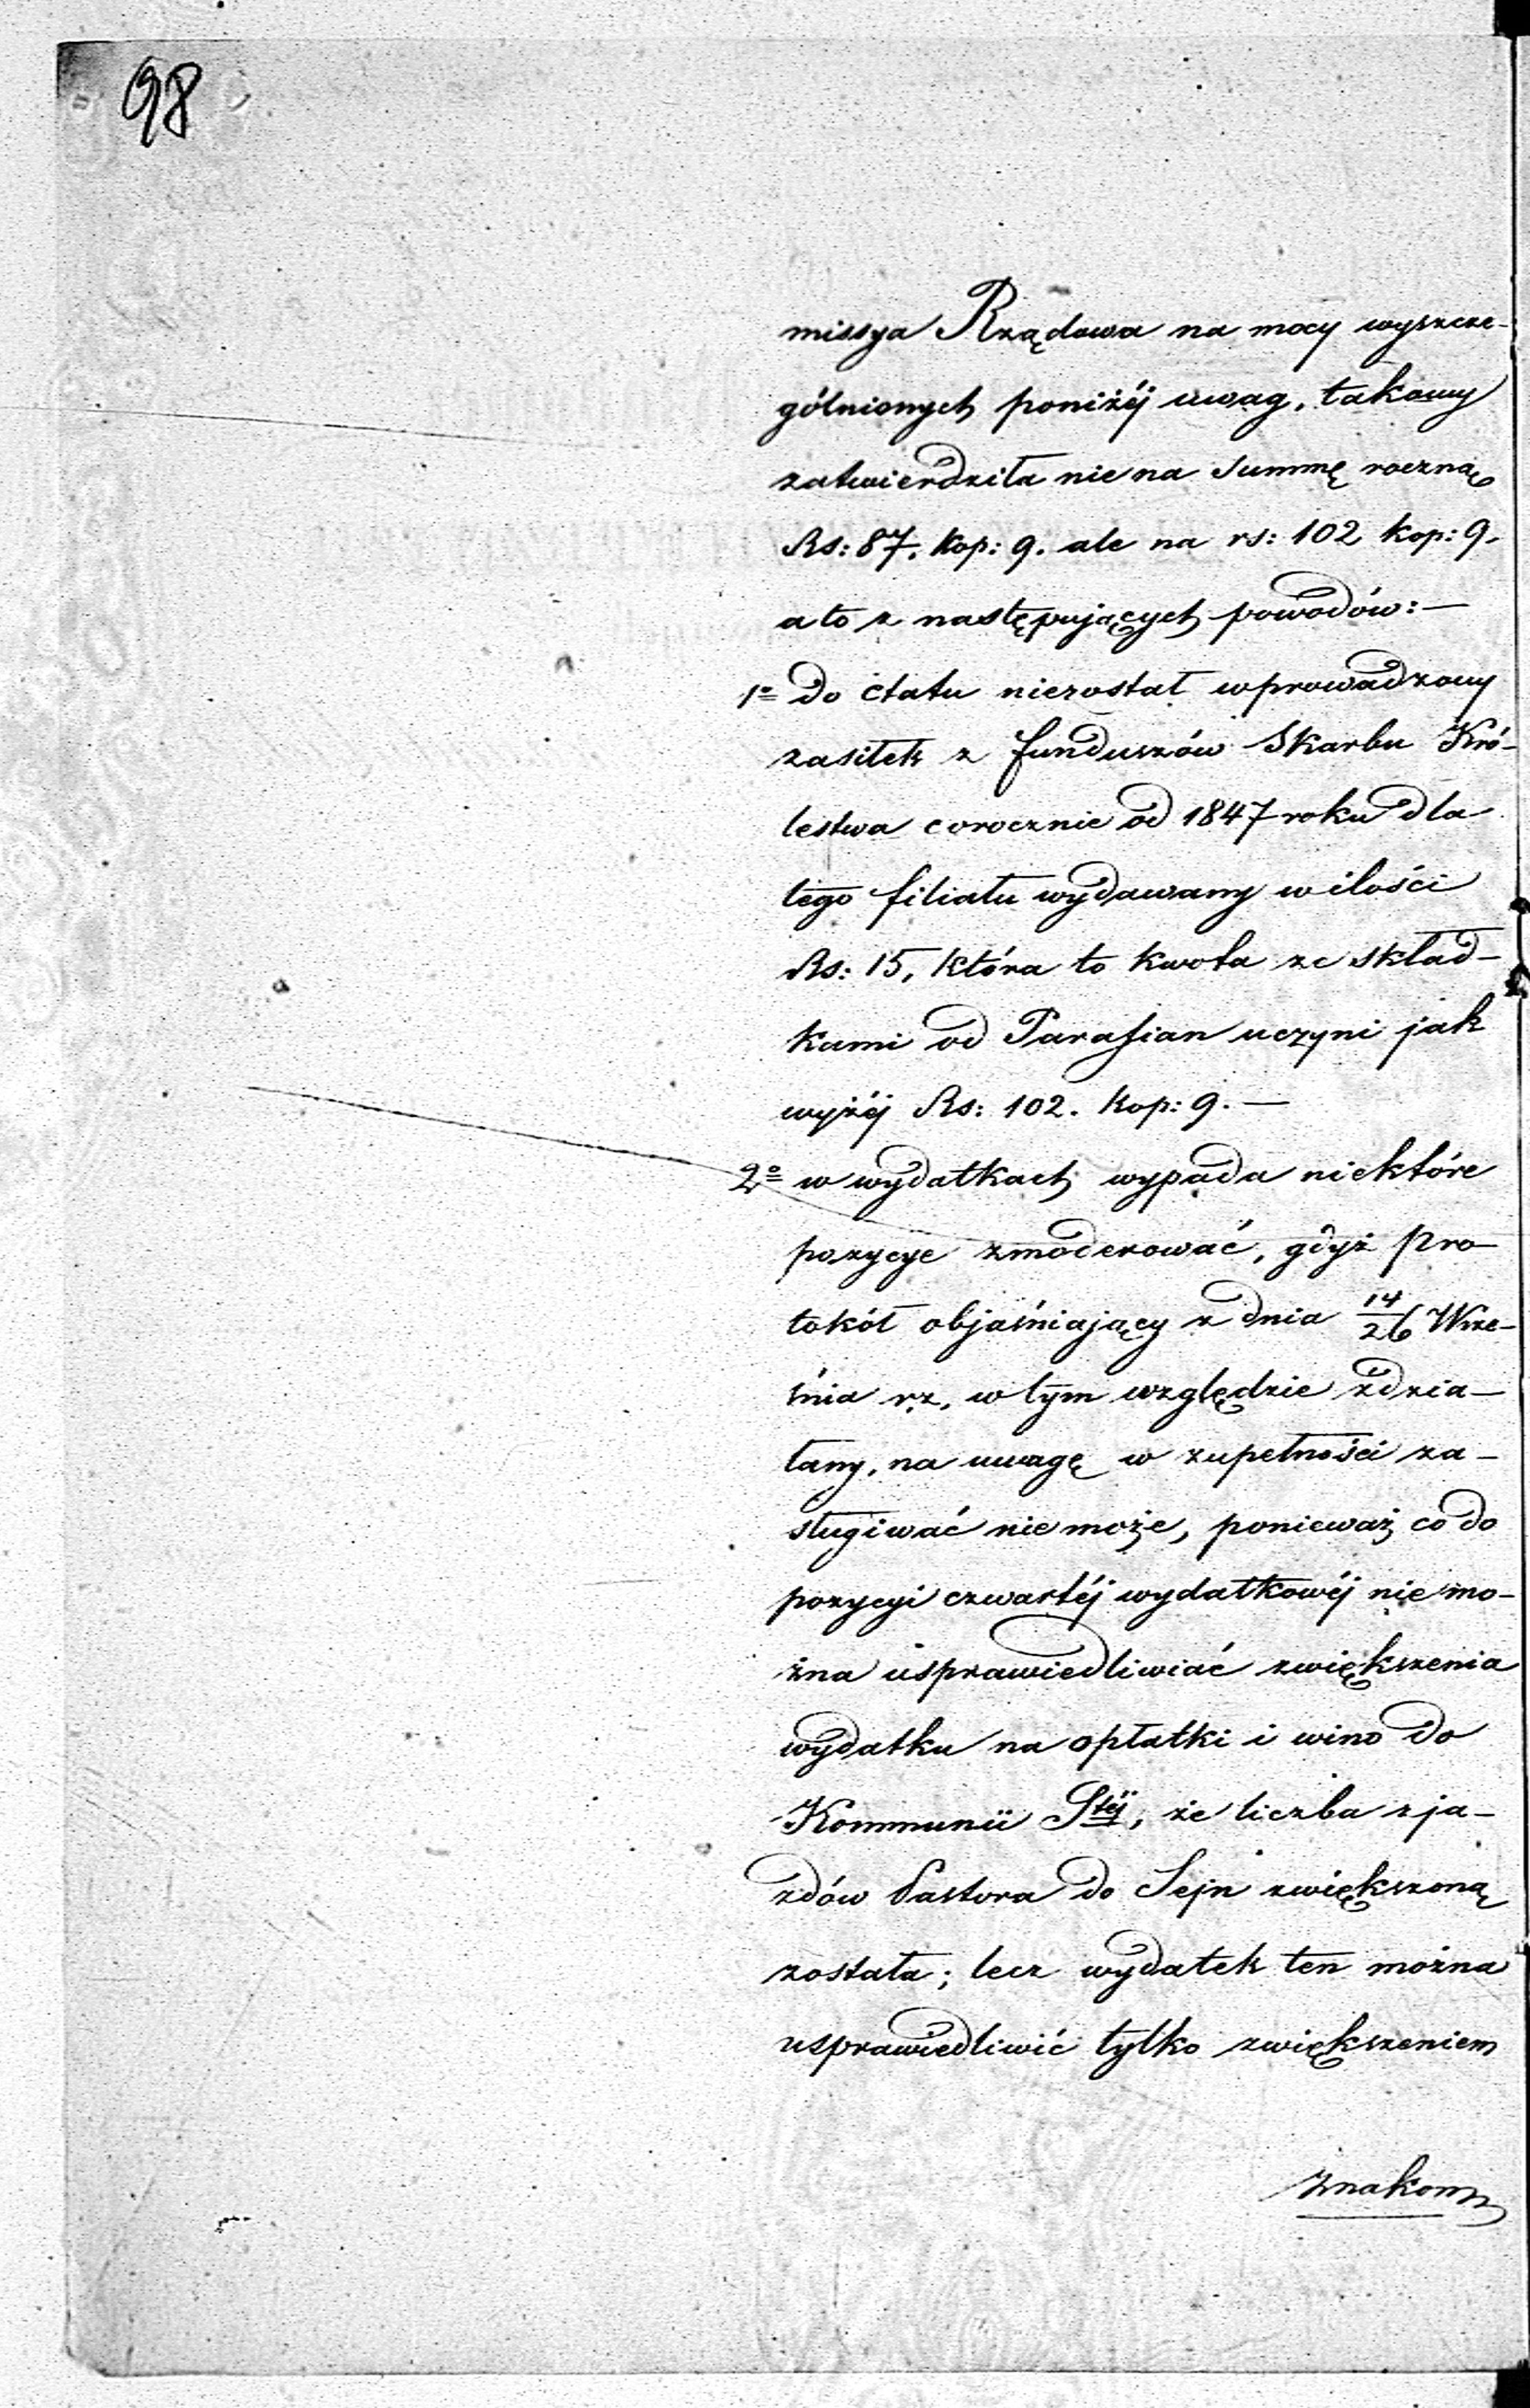 98
missya Rządowa na mocy wyszcze-
gólnionych poniżéj uwag, takowy
zatwierdziła nie na Summę roczną
Rs: 87. kop: 9. ale na rs: 102 kop: 9.
a to z następujących powodów: —
1o do etatu niezostał wprowadzony
zasiłek z funduszów Skarbu Kró-
lestwa corocznie od 1847 roku dla
tego filiału wydawany w ilości
Rs: 15, która to kwota ze skład-
kami od Parafian uczyni jak
wyżéj Rs: 102. kop: 9. —
2o w wydatkach wypada niektóre
pozycye zmoderować, gdyż pro-
tokół objaśniający z dnia 14/26 Wrze-
śnia r.z. w tym względzie zdzia-
łany, na uwagę w zupełności za-
sługiwać nie może, ponieważ co do
pozycyi czwartéj wydatkowéj nie mo-
żna usprawiedliwiać zwiększenia
wydatku na opłatki i wino do
Kommunii Stéj, że liczba zja-
zdów Pastora do Sejn zwiększoną
została; lecz wydatek ten można
usprawiedliwić tylko zwiększeniem
znakom